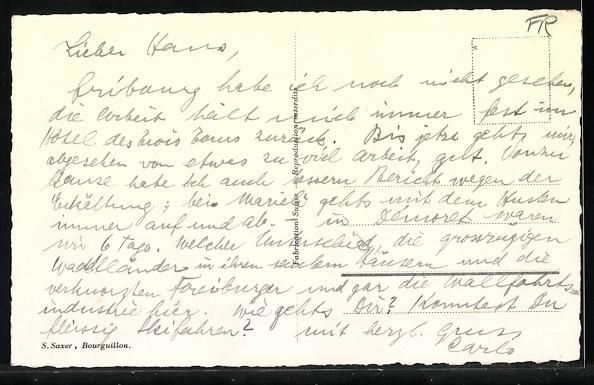 FR
Lieber Hans,
Fribourg habe ich noch nicht gesehen,
die Arbeit hält mich immer fest im
Hôtel des Trois Tours zurück. Bis jetzt gehts mir,
abgesehen von etwas zu viel Arbeit, gut. Von zu
Hause habe ich auch bessern Bericht wegen der
Erkältung; bei Marieli gehts mit dem Husten
immer auf und ab. In Demoret waren
wir 6 Tage. Welcher Unterschied, die grosszügigen
Waadtländer in ihren saubern Häusern und die
verknorzten Freiburger und gar die Wallfahrts=
industrie hier. Wie gehts Dir? Konntest Du
fleissig Skifahren? mit herzl. Gruss
Carlo
S. Saxer, Bourguillon.
Fabrication Suisse — Reproduction interdite